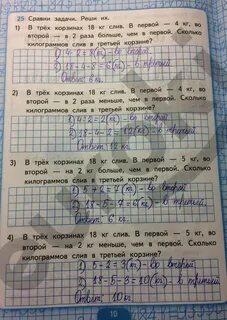 25 Сравни задачи. Реши их.
1) В трёх корзинах 18 кг слив. В первой — 4 кг, во
второй — в 2 раза больше, чем в первой. Сколько
килограммов слив в третьей корзине?
1) 4·2=8(кг)-во второй
2) 18-4-8=6(кг)-в третьей
Ответ: 6 кг.
2) В трёх корзинах 18 кг слив. В первой — 4 кг, во
второй — в 2 раза меньше, чем в первой. Сколько
килограммов слив в третьей корзине?
1) 4:2=2(кг)-во второй
2) 18-4-2=12(кг)-в третьей
Ответ: 12 кг.
3) В трёх корзинах 18 кг слив. В первой — 5 кг, во
второй — на 2 кг больше, чем в первой. Сколько
килограммов слив в третьей корзине?
1) 5+2=7(кг)-во второй
2) 18-5-7=6(кг)-в третьей.
Ответ: 6 кг.
4) В трёх корзинах 18 кг слив. В первой — 5 кг, во
второй — на 2 кг меньше, чем в первой. Сколько
килограммов слив в третьей корзине?
1) 5-2=3(кг)-во второй
2) 18-5-3=10(кг)-в третьей
Ответ: 10 кг.
10